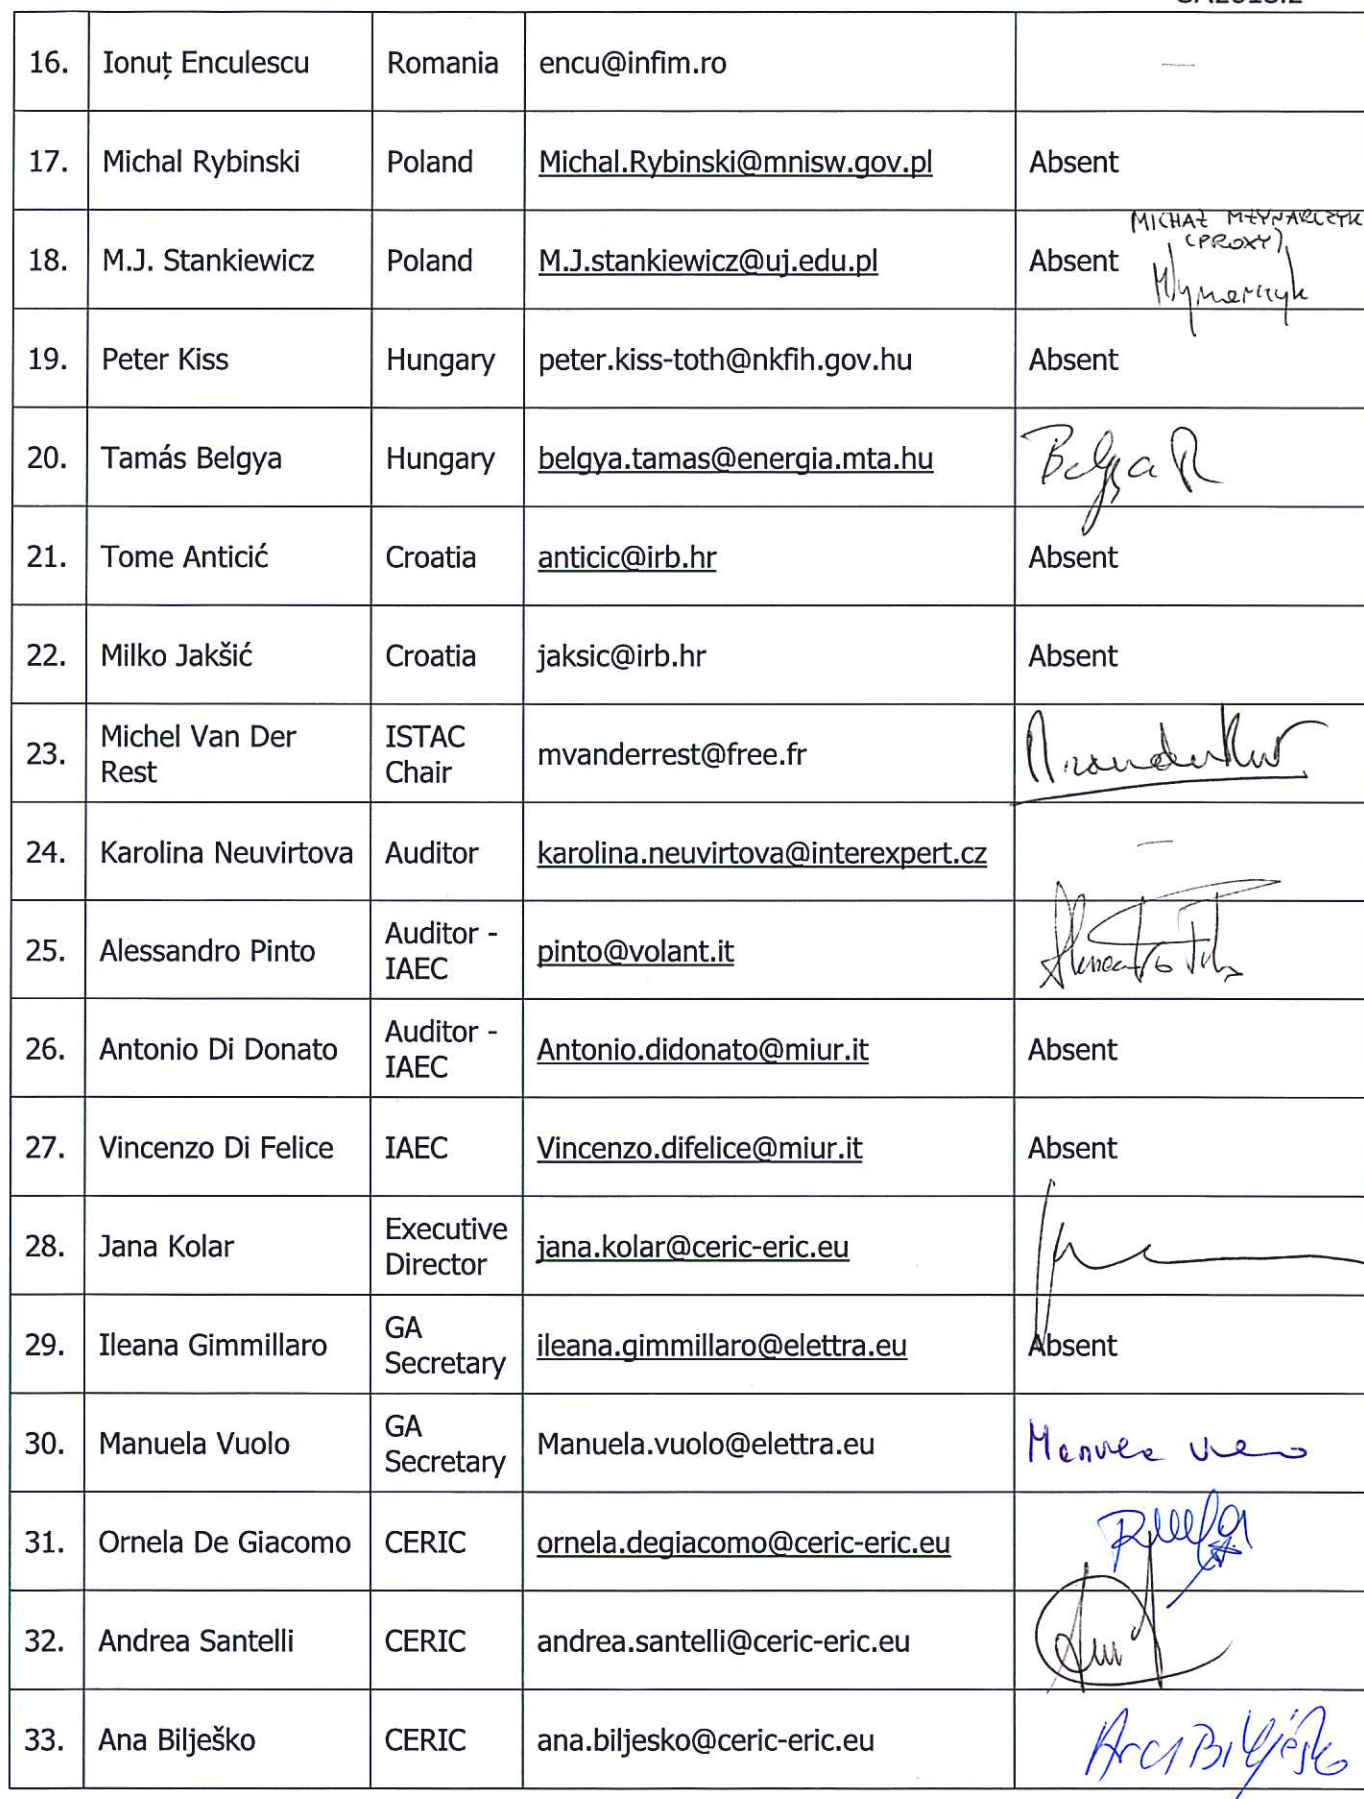 16. Ionuț Enculescu Romania encu@infim.ro —
17. Michal Rybinski Poland Michal.Rybinski@mnisw.gov.pl Absent
MICHAŁ MŁYNARCZYK
(PROXY)
18. M.J. Stankiewicz Poland M.J.stankiewicz@uj.edu.pl Absent
Młynarczyk
19. Peter Kiss Hungary peter.kiss-toth@nkfih.gov.hu Absent
20. Tamás Belgya Hungary belgya.tamas@energia.mta.hu Belgya
21. Tome Anticić Croatia anticic@irb.hr Absent
22. Milko Jakšić Croatia jaksic@irb.hr Absent
23. Michel Van Der
Rest
ISTAC
Chair
mvanderrest@free.fr
24. Karolina Neuvirtova Auditor karolina.neuvirtova@interexpert.cz —
25. Alessandro Pinto
Auditor -
IAEC
pinto@volant.it
26. Antonio Di Donato
Auditor -
IAEC
Antonio.didonato@miur.it Absent
27. Vincenzo Di Felice IAEC Vincenzo.difelice@miur.it Absent
28. Jana Kolar
Executive
Director
jana.kolar@ceric-eric.eu
29. Ileana Gimmillaro
GA
Secretary
ileana.gimmillaro@elettra.eu Absent
30. Manuela Vuolo
GA
Secretary
Manuela.vuolo@elettra.eu
31. Ornela De Giacomo CERIC ornela.degiacomo@ceric-eric.eu
32. Andrea Santelli CERIC andrea.santelli@ceric-eric.eu
33. Ana Bilješko CERIC ana.biljesko@ceric-eric.eu Ana Bilješko